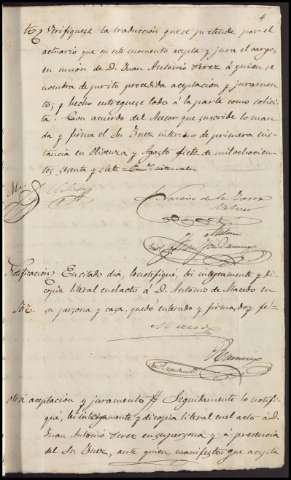 4
Verifíquese la traducción que se pretende por el
actuario que en este momento acepta y jura el cargo,
en union de D. Juan Antonio Perez á quien se
nombra de perito precedida aceptacion y juramen-
to; y hecho entreguese todo á la parte como solici-
ta. Con acuerdo del Asesor que suscribe lo man-
da y firma el Sr. Juez interino de primera ins-
tancia en Olivenza y Agosto siete de mil ochocien-
tos y siete
Ante mi
Notificacion En citado dia, lo notifiqué, lei integramente y di
copia literal en el acto á D. Antonio de Macedo en
su persona y casa, quedó enterado y firma, doy fé.
Macedo
Otra aceptacion y juramento Seguidamente lo notifi-
qué, lei integramente y di copia literal en el acto á D.
Juan Antonio Perez en su persona y á presencia
del Sr. Juez, ante quien manifestó que acepta